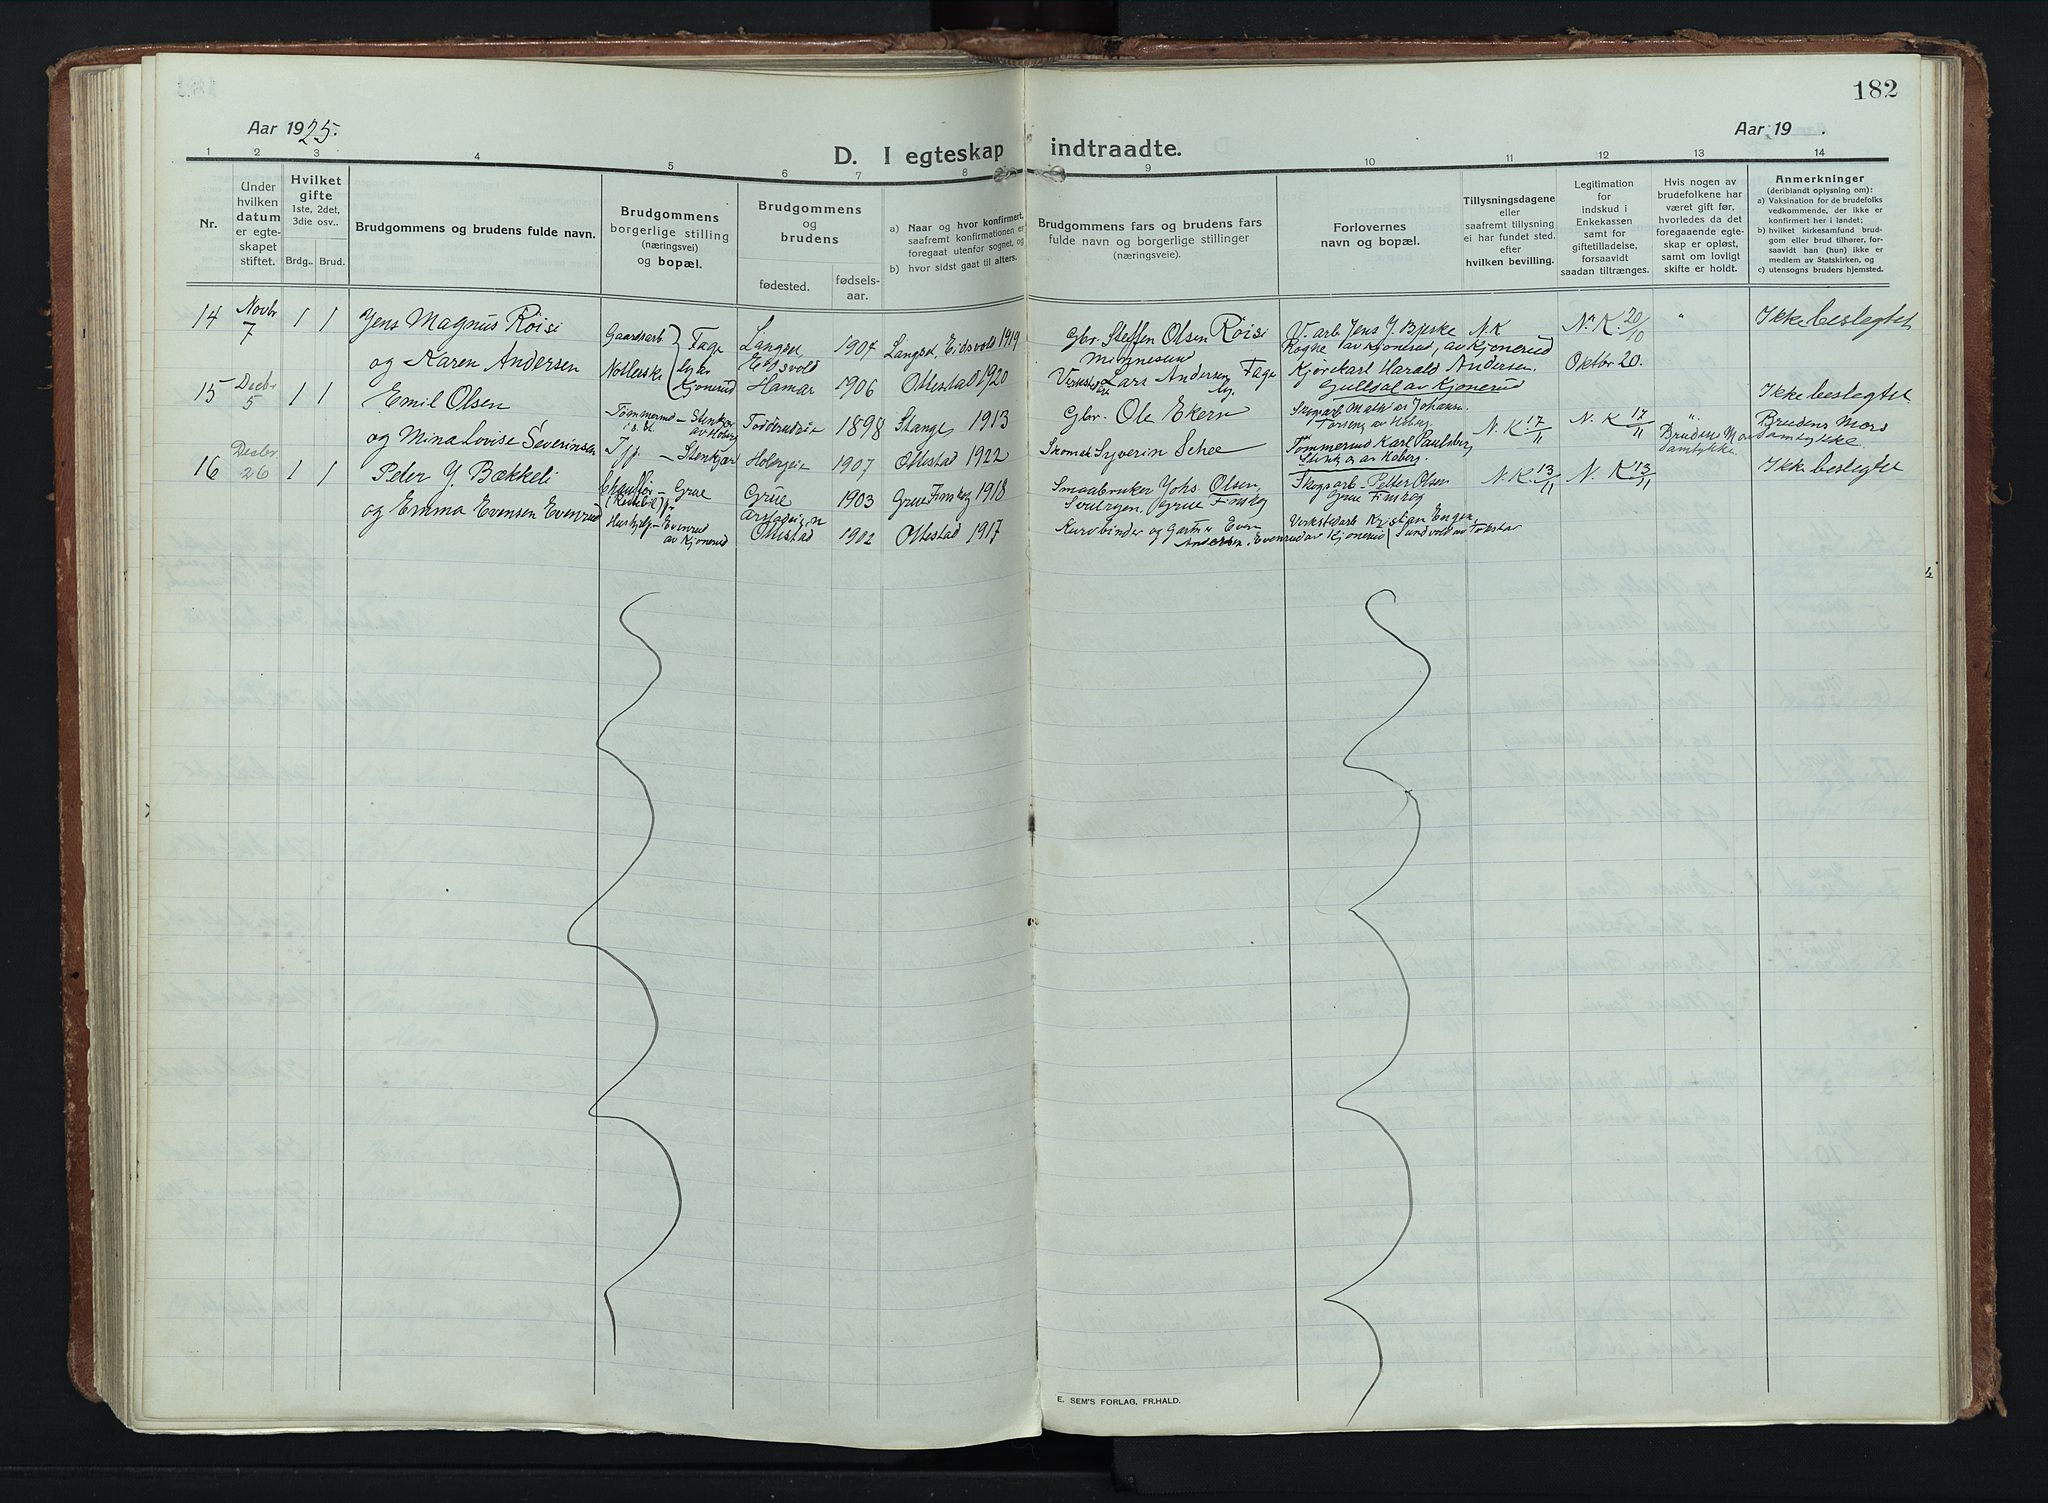 182
Aar 1925.
Aar 19 .
D. I egteskap indtraadte.
1 2 3 4 5 6 7 8 9 10 11 12 13 14
Nr.
Under hvilken datum er egteskapet stiftet.
Hvilket gifte
1ste, 2det, 3die osv..
Brdg.. Brud.
Brudgommens og brudens fulde navn.
Brudgommens borgerlige stilling (næringsvei) og bopæl.
Brudgommens og brudens
fødested.
fødselsaar.
a) Naar og hvor konfirmert, saafremt konfirmationen er foregaat utenfor sognet, og
b) hvor sidst gaat til alters.
Brudgommens fars og brudens fars fulde navn og borgerlige stillinger (næringsveie).
Forlovernes navn og bopæl.
Tillysningsdagene eller saafremt tillysning ei har fundet sted. efter hvilken bevilling.
Legitimation for indskud i Enkekassen samt for giftetilladelse, forsaavidt saadan tiltrænges.
Hvis nogen av brudefolkene har været gift før, hvorledes da det foregaaende egteskap er opløst, samt om lovligt skifte er holdt.
Anmerkninger
(deriblandt oplysning om):
a) Vaksination for de brudefolks vedkommende, der ikke er konfirmert her i landet;
b) hvilket kirkesamfund brudgom eller brud tilhører, forsaavidt han (hun) ikke er medlem av Statskirken, og
c) utensogns bruders hjemsted.
14 Novbr 7 1 1 Jens Magnus Röisi Gaardsarb Fage Langset, Eidsvold 1907 Langset, Eidsvold 1919 Gbr. Steffen Olsen Röisi Minnesund V. arb Jens J. Bjerke N.K N. K. 20/10 " Ikke beslegtet
og Karen Andersen av Kjonerud Hamar 1906 Ottestad 1920 Lars Andersen Fage Kjørekarl Harald Andersen. Gulldal av Kjonerud Oktbr 20.
15 Decbr 5 1 1 Emil Olsen Stenkjær av Hoberg 1898 Stange 1913 Gbr. Ole Ekern Skogsarb Mathias Johans. av Hoberg N. K 17/11 N. K 17/11 " Ikke beslegtet
og Mina Lovise Severinsen Stenkjær 1907 Ottestad 1922 Skomak Syverin Schee Tömmermd Karl Paulsberg av Hoberg. Brudens Mors Samtykke. Brudens Mors Samtykke
16 Decbr. 26 1 1 Peder J. Bækkeli Chauffør Grue Grue 1903 Grue Finskog 1918 Smaabruker Johs. Olsen, Grue Finskog Skogsarb Petter Olsen Grue Finskog N. K 13/11 N. K 13/11 Ikke beslegtet
og Emma Evensen Evenrud Hushjelp Evenrud av Kjonerud Ottestad 1902 Ottestad 1917 Kurvbinder og Gartner Even Andersen, Evenrud av Kjonerud Verkstedarb Kristian Engen Sundvold
E. SEM'S FORLAG, FR.HALD.